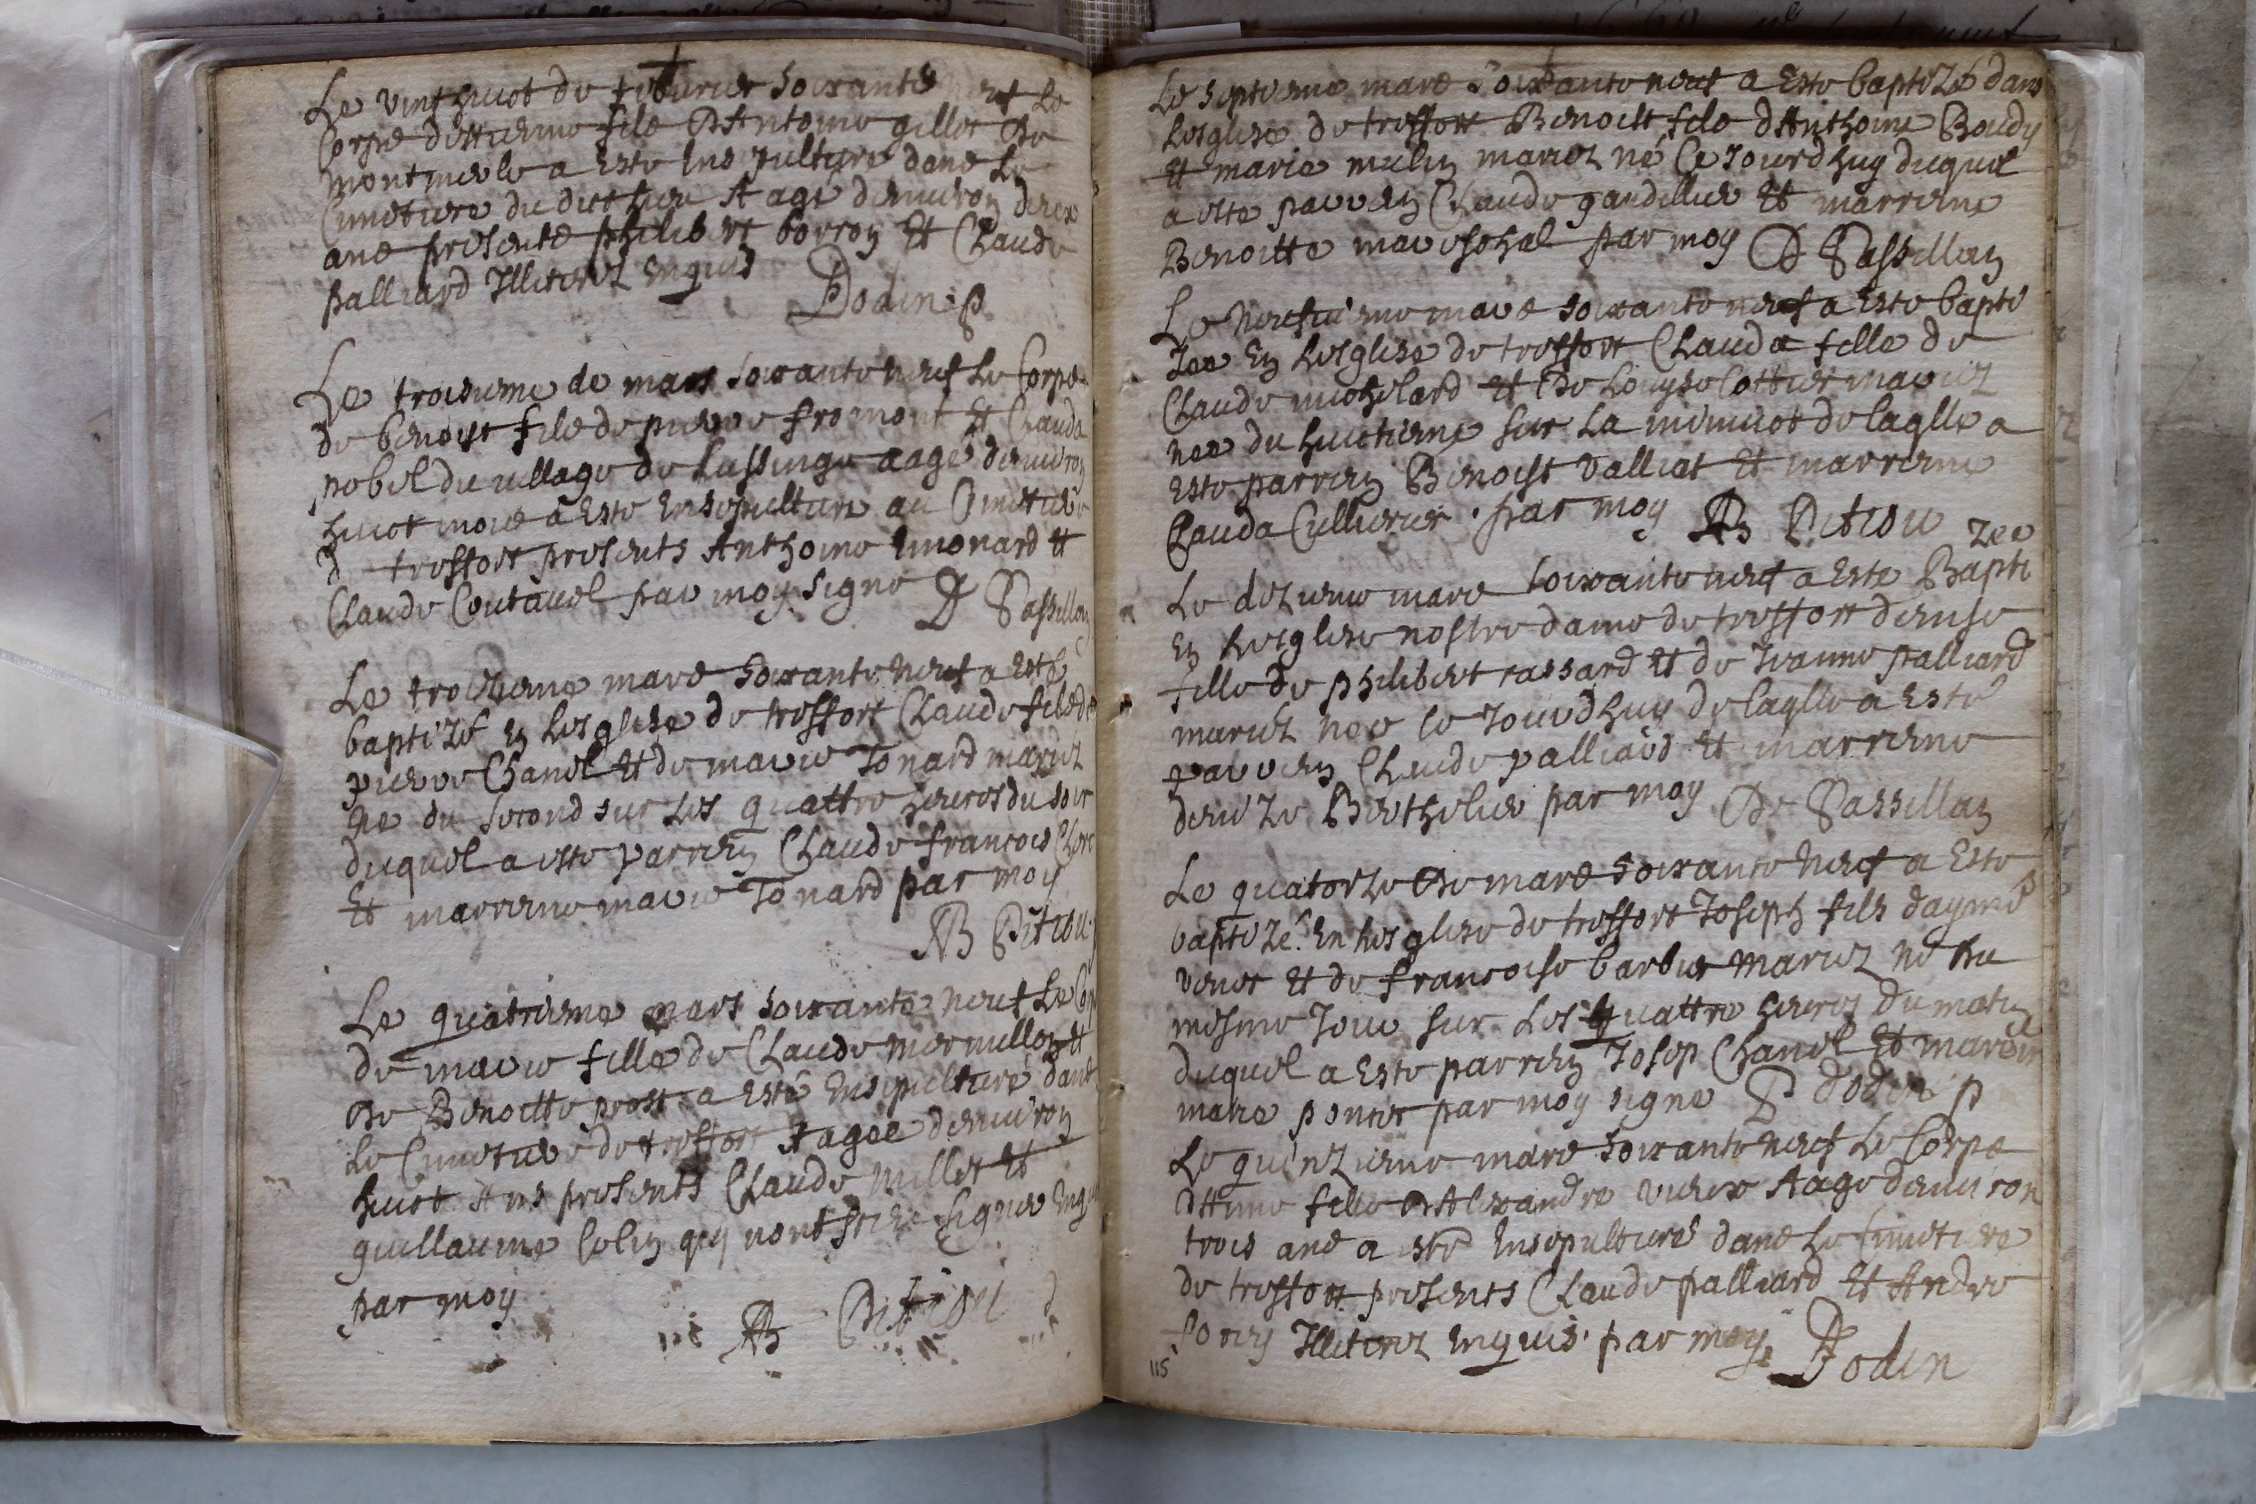 Le vint huict de feburier soixante neuf Le
Corps destienne fils D'Antoine gillet De
montmerle a Esté Ensepulture dans Le
Cimetiere du dict lieu Aagé denuiron deux
ans presents philibert borron Et Claude
palliard Illiterez enquis
Dodin p
Le troisieme de mars soixante neuf Le Corps
de benoist fils de pierre fromont Et Clauda
pobel du uillage de Lussinge aagé denuiron
huict mois a Esté Ensepulture au Cimetiere
d tresfort presents Anthoine Emonard et
Claude Coutauel par moy signe D Vassillan
Le troizieme mars soixante neuf a Esté
baptizé En Lesglise de tresfort Claude fils de
pierre Chanel Et de marie Tonard mariez
Né du second sur Les quattre heures du soir
duquel a esté parrein Claude francois
Et marreine marie Tonard par moy
AB Pitiou p
Le quatrieme mars soixante neuf Le Corps
de marie fille de Claude mermillon Et
De Benoitte prost a Esté Ensepulturé dans
Le Cimetiere de tresfort Aagee denuiron
huict Ans presents Claude millet Et
guillaume Colin qui nont sceu signer Enquis
par moy
AB Pitiou
Le septieme mars soixante neuf a Esté baptizé dans
Lesglise de tresfort Benoitt fils dAnthoine Boudy
Et marie mulin mariez né Ce Jourdhuy duquel
a esté parrein Claude gaudillier Et marreine
Benoitte mareschal par moy D Vassillan
Le neufuieme mars soixante neuf a Esté bapti
zee En Lesglise de tresfort Clauda fille de
Claude michelard Et De Louyse Cottier mariez
nee du huictieme sur La minuict de laqlle a
Esté parrein Benoist Valliat Et marreine
Clauda Cullierier. par moy AB Pitiou
zee
Le dezieme mars soixante neuf a Esté Bapti
En Lesglise nostre dame de tresfort denise
fille de philibert rassard Et de Jeanne palliard
mariez nee Ce Jourdhuy de laqlle a Esté
parrein Claude palliard Et marreine
denize Berthelier par moy De Vassillan
Le quatorze De mars soixante neuf a Esté
baptizé En Lesglise de tresfort Joseph fils daymé
venet Et de francoise barbier mariez né du
mesme Jour sur Les quattre heures du matin
duquel a Esté parrein Josep Chanel Et marreine
marie poncet par moy signe P dodin p
Le quinzieme mars soixante neuf Le Corps
dAnne fille dAlexandre vieux Aage denuiron
trois ans a esté Ensepulturé dans Le Cimetiere
de tresfort presents Claude palliard Et Andre
Illiterez enquis par moy
Dodin
115